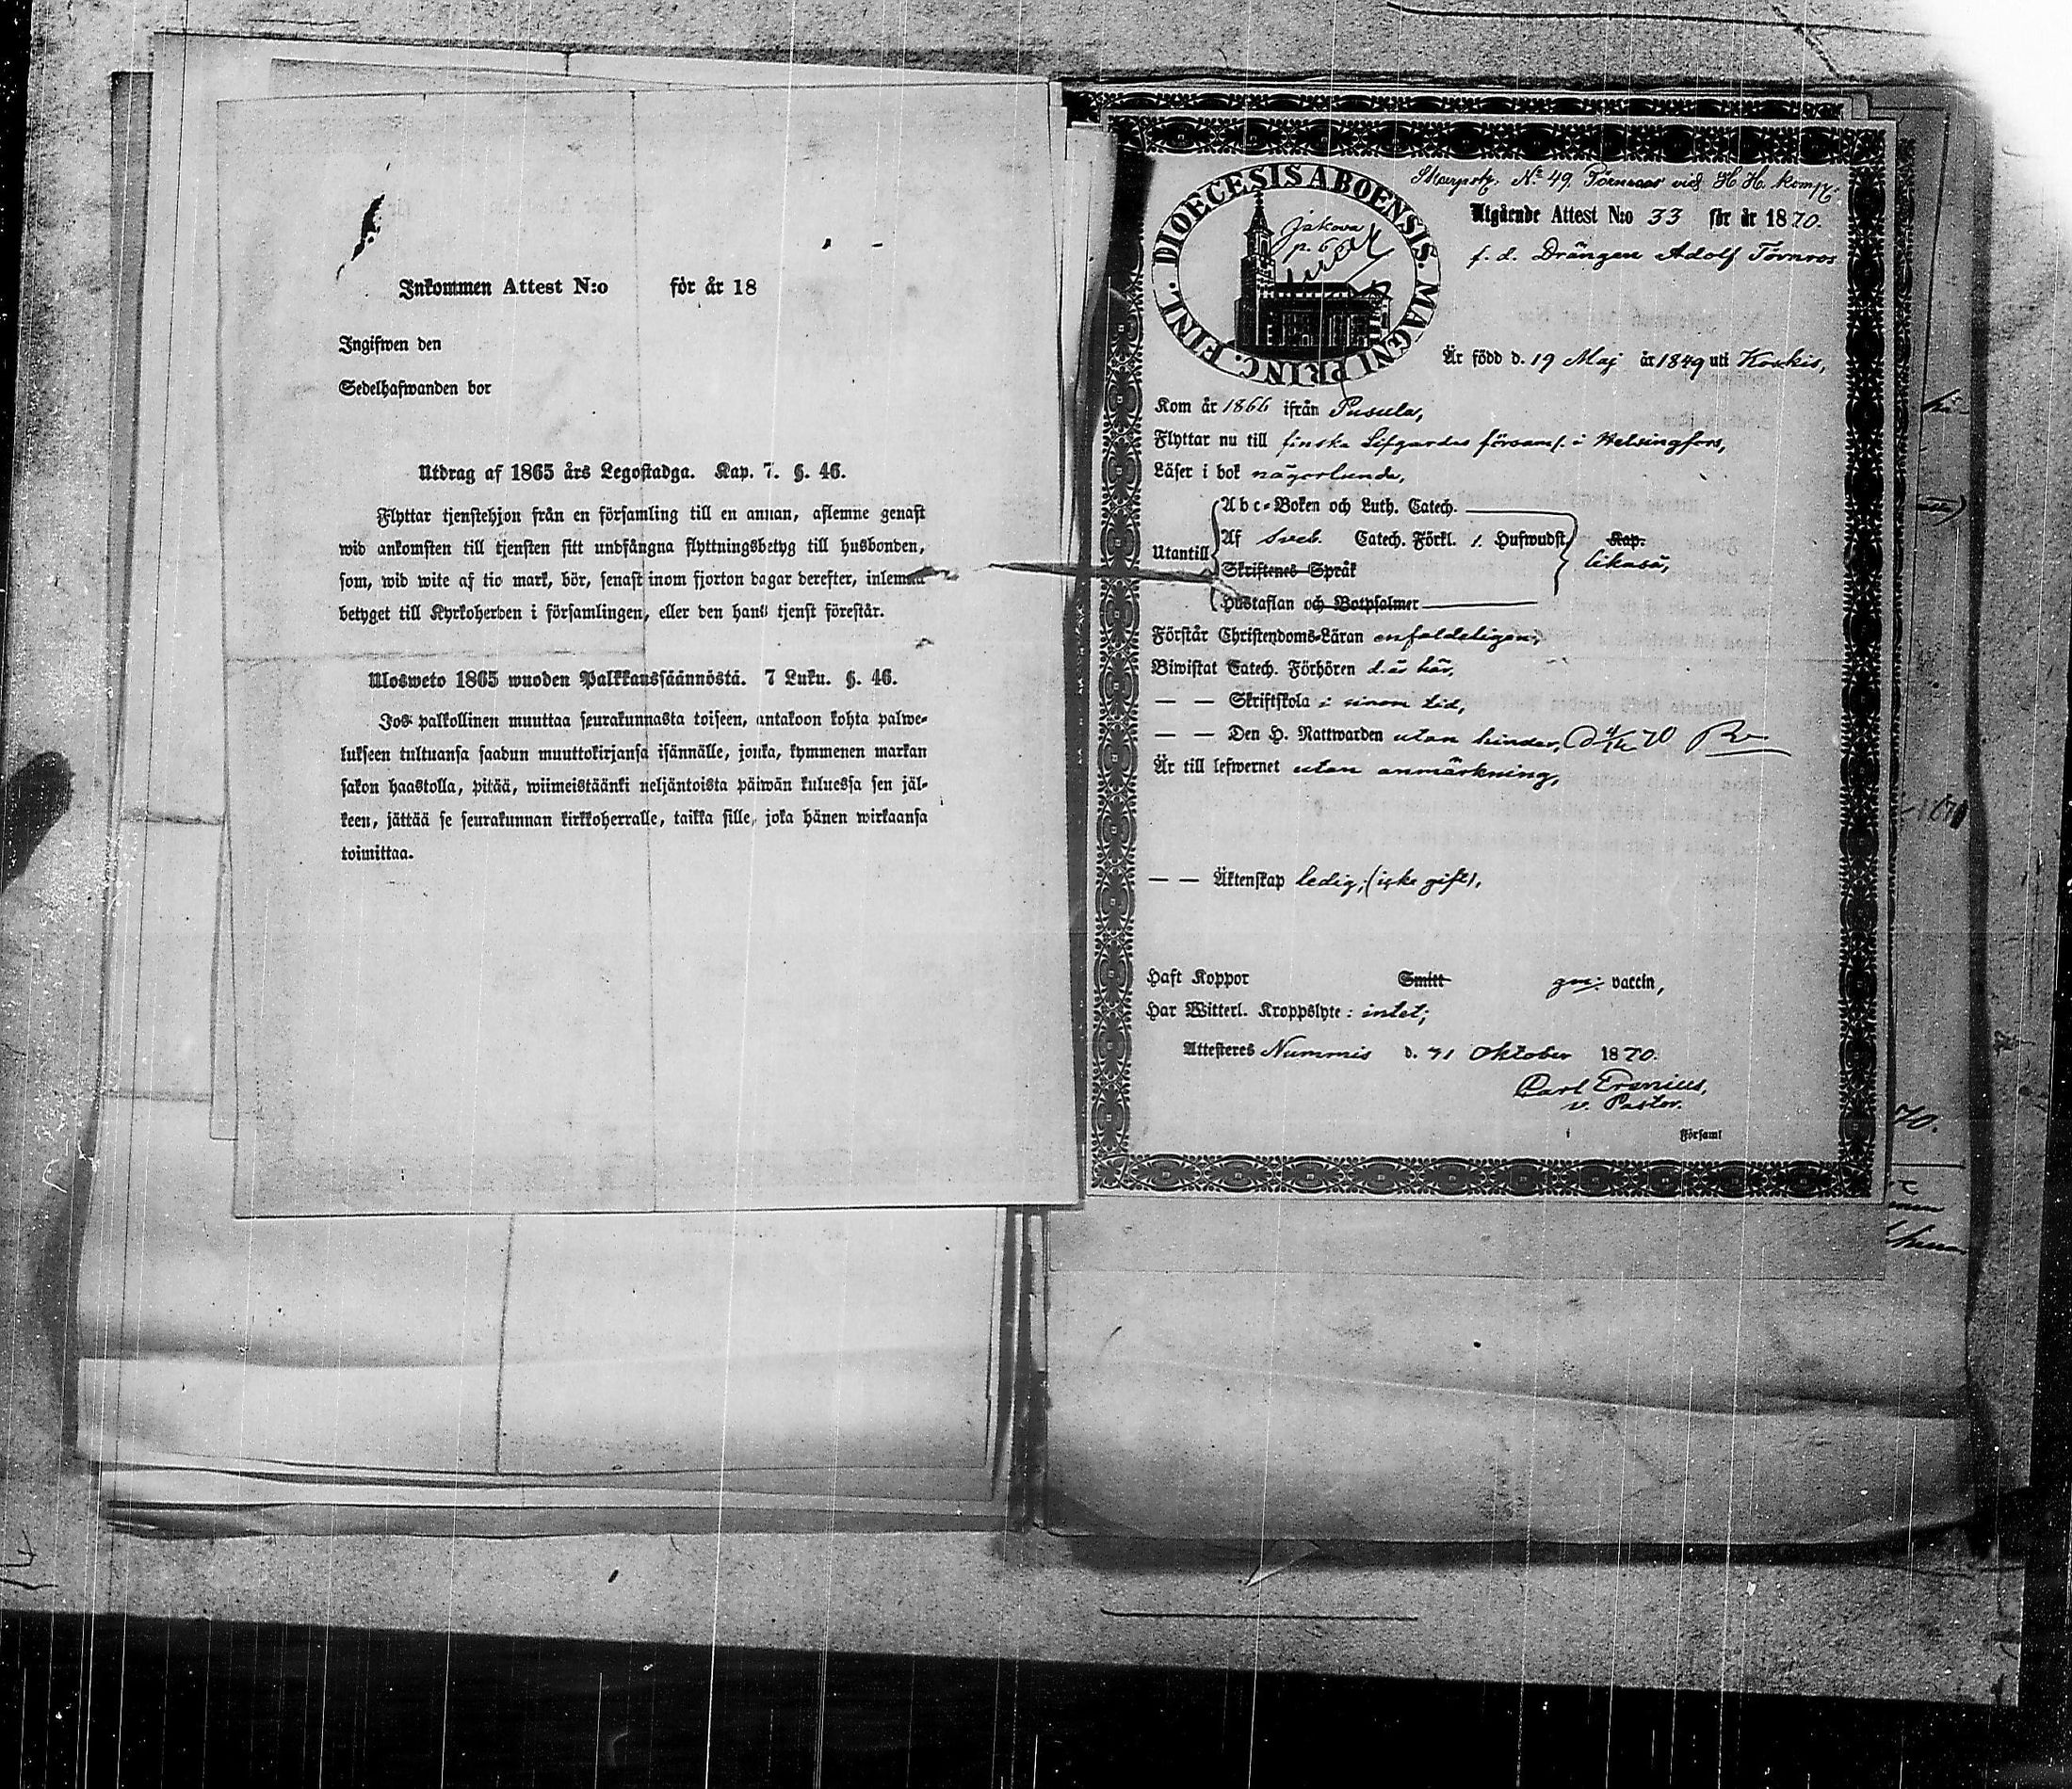 Inkommen Attest N:o för år 18
Ingifwen den
Sedelhafwanden bor
Utdrag af 1865 års Legostadga. Kap. 7. §. 46.
Flyttar tjenstehjon från en församling till en annan, aflemne genast
wid ankomsten till tjensten sitt undfångna flyttningsbetyg till husbonden,
som, wid wite af tio mark, bör, senast inom fjorton dagar derefter, inlemna
betyget till Kyrkoherden i församlingen, eller den hans tjenst förestår.
Ulosweto 1865 wuoden Palkkaussäännöstä. 7 Luku. §. 46.
Jos palkollinen muuttaa seurakunnasta toiseen, antakoon kohta palwe-
lukseen tultuansa saadun muuttokirjansa isännälle, jonka, kymmenen markan
sakon haastolla, pitää, wiimeistäänki neljäntoista päiwän kuluessa sen jäl-
keen, jättää se seurakunnan kirkkoherralle, taikka sille, joka hänen wirkaansa
toimittaa.
DIOECESIS ABOENSIS. MAGNI PRINC. FINL.
Jakova
p. 66
Skarpsk. No 49. Törnroos vid H. H. komp.
Utgående Attest N:o 33 för år 1870.
f. d. Drängen Adolf Törnros
Är född d. 19 Maj år 1849 uti Koskis,
Kom år 1866 ifrån Pusula,
Flyttar nu till finska Lifgardes församl. i Helsingfors,
Läser i bok någorlunda,
Utantill
Abc-Boken och Luth. Catech.
Af Sveb. Catech. Förkl. 1. Hufwudst. Kap.
Skriftenes Språk likaså,
Hustaflan och Botpsalmer
Förstår Christendoms-Läran enfaldeligen,
Biwistat Catech. Förhören d. är här,
— — Skriftskola i sinom tid,
— — Den H. Nattwarden utan hinder, 70
Är till lefwernet utan anmärkning,
— — Äktenskap ledig; (icke gift),
Haft Koppor Smitt gm: vaccin,
Har Witterl. Kroppslyte: intet;
Attesteras Nummis d. 31 Oktober 1870.
Carl Eranius,
v. Pastor.
i Församl